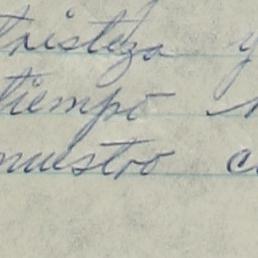 tristeza y
tiempo
nuestro c